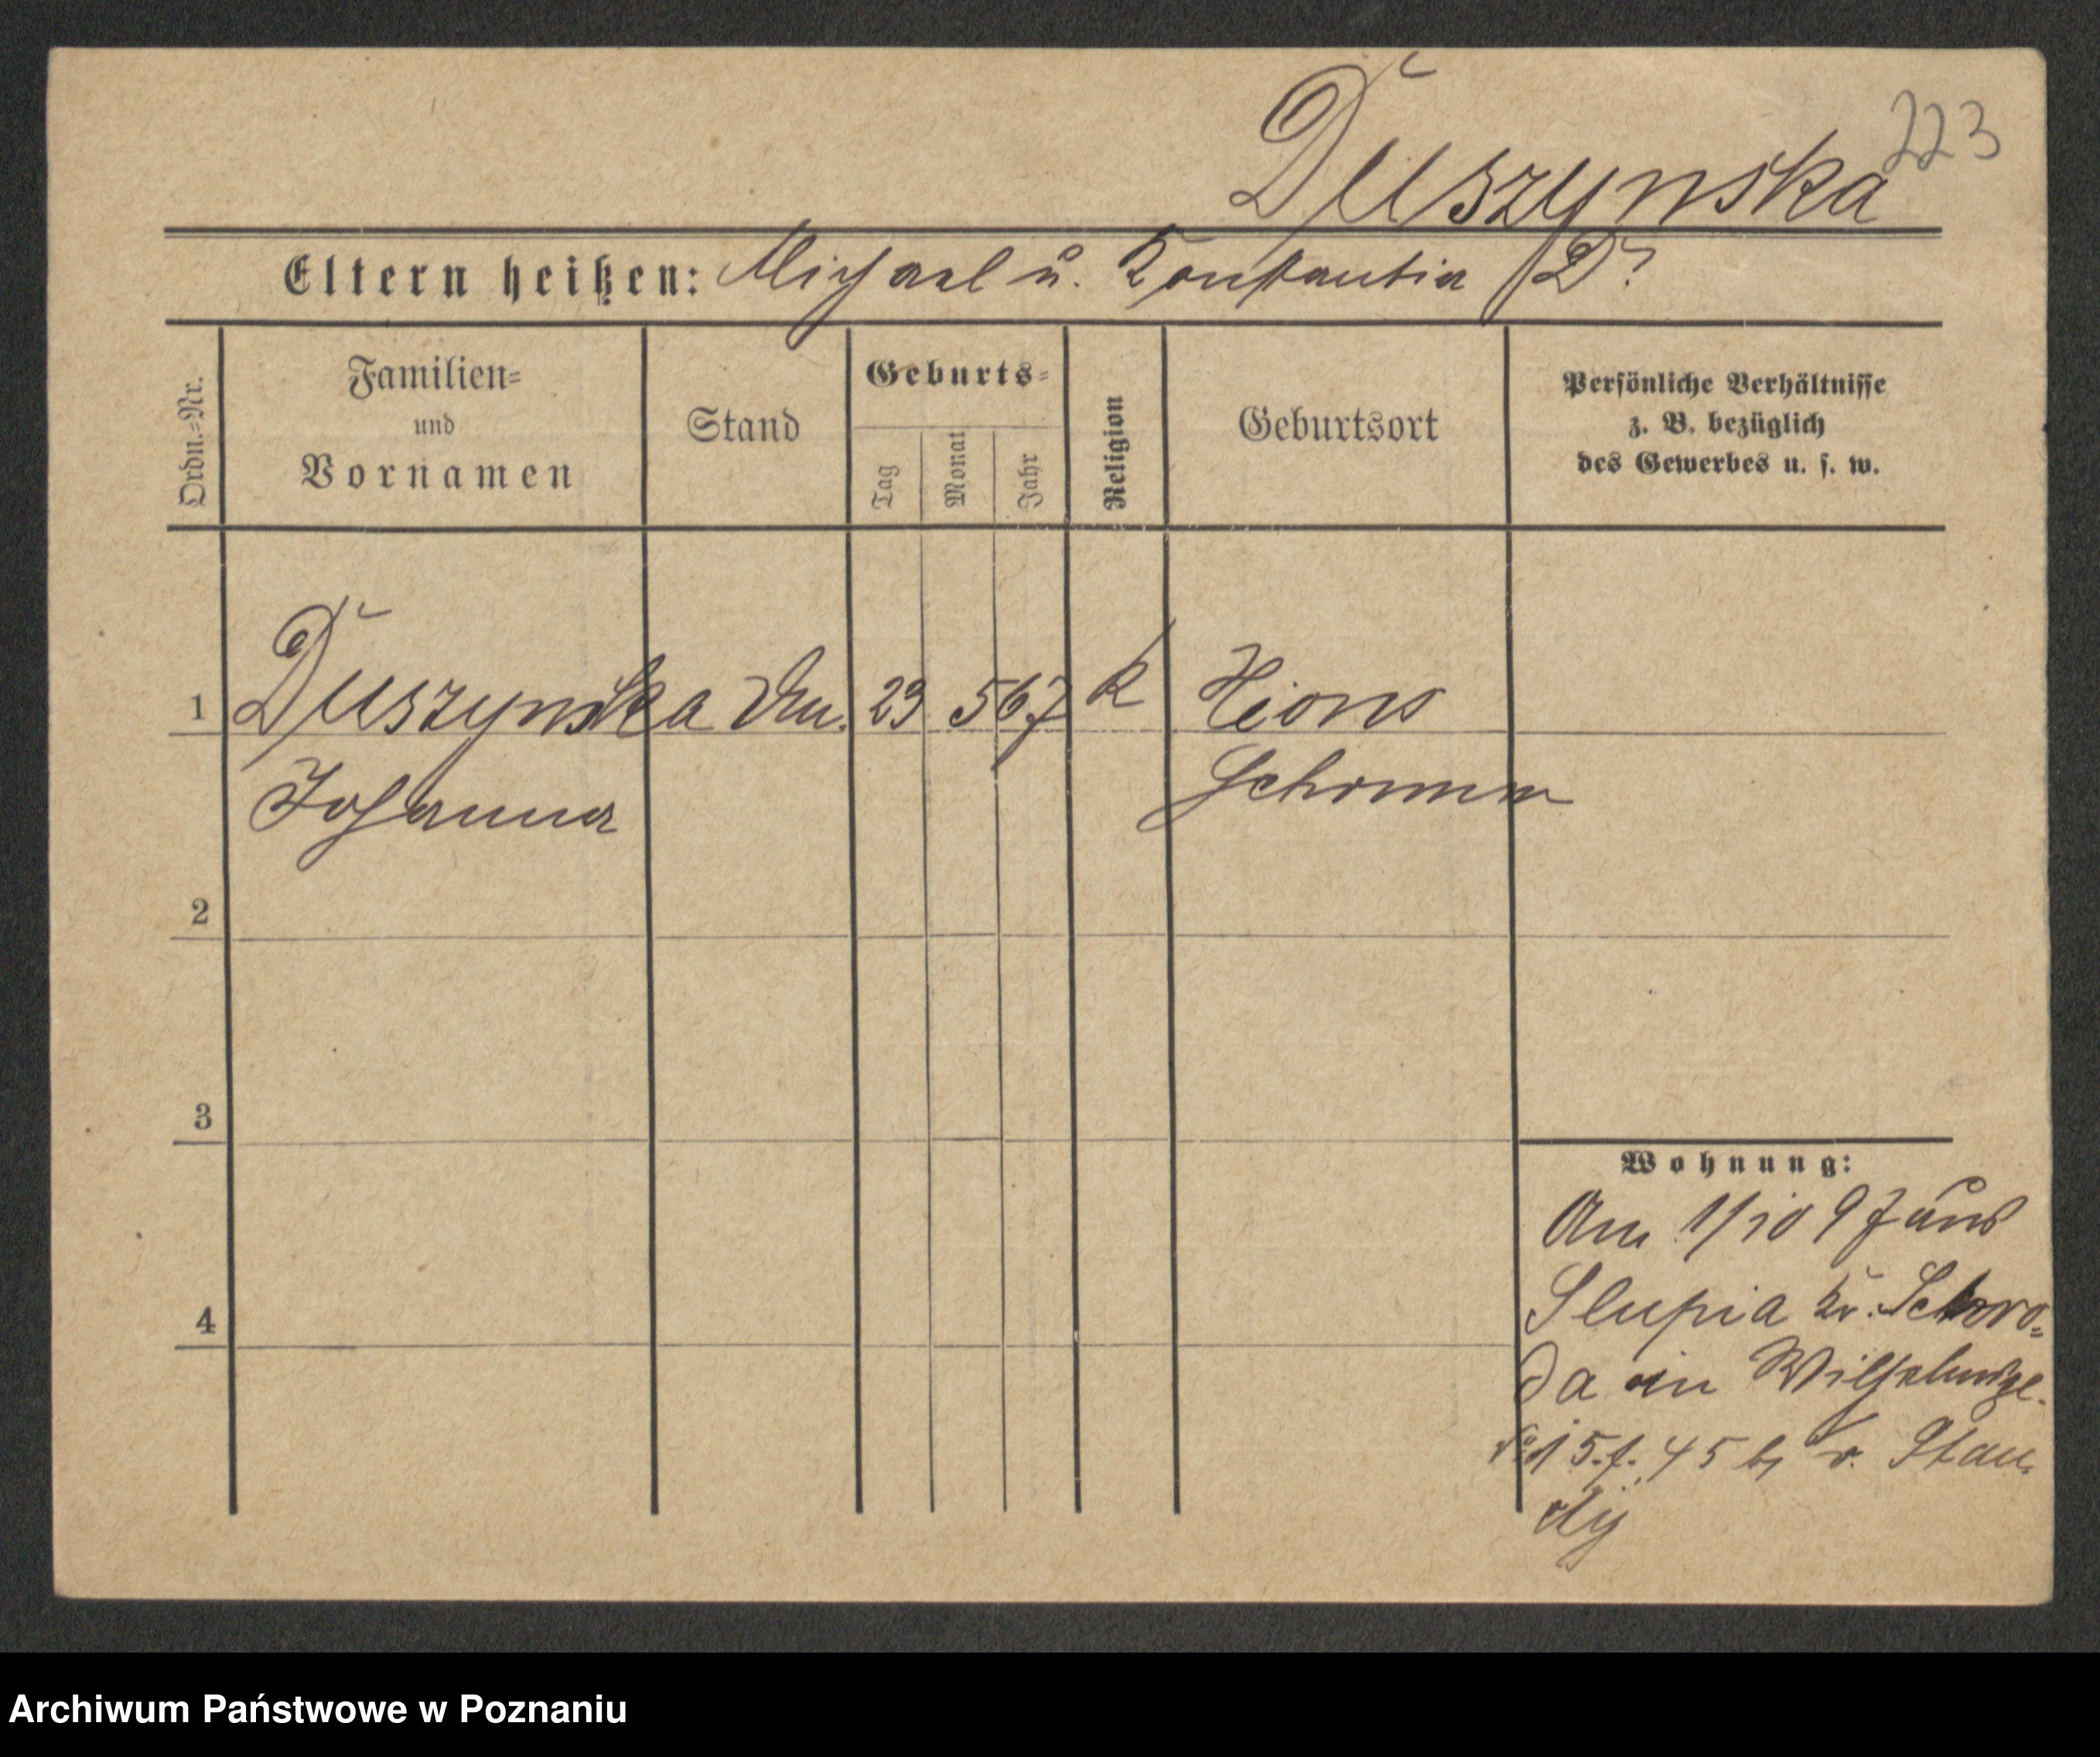 Duszynska
223
Eltern heißen: Michael u. Konstantia D?
Ordn.=Nr.
Familien=
und
Vornamen
Stand
Geburts=
Tag
Monat
Jahr
Religion
Geburtsort
Persönliche Verhältnisse
z. B. bezüglich
des Gewerbes u. s. w.
1 Duszynska 23 5 67 k Xions
Johanna Schrimm
2
3
4
Wohnung:
Am 1/10 97 aus
Slupia Kr. Schro=
da in Wilhelmspl.
15. f. 45 b/ v. Stau
dy
Archiwum Państwowe w Poznaniu